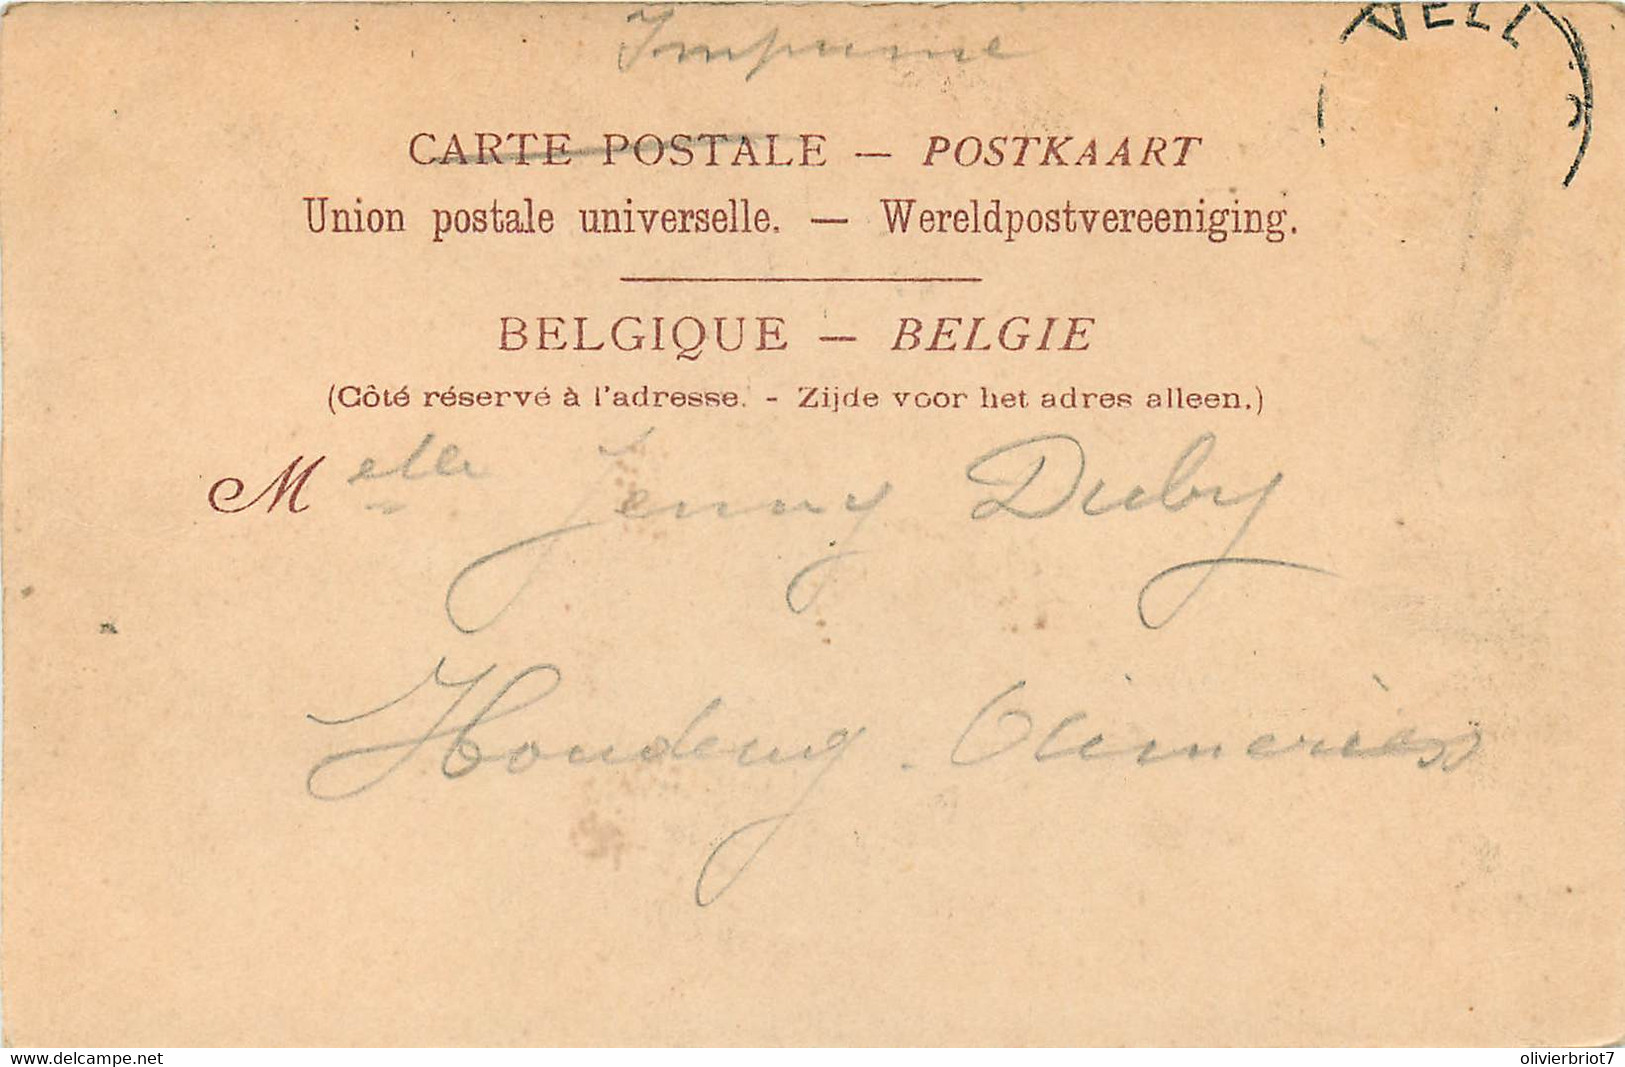 Imprimé
VELL
CARTE POSTALE — POSTKAART
Union postale universelle. — Wereldpostvereeniging.
BELGIQUE — BELGIE
(Côté réservé à l'adresse. - Zijde voor het adres alleen.)
Melle Jenny Duby
Houdeng
www.delcampe.net
olivierbriot7